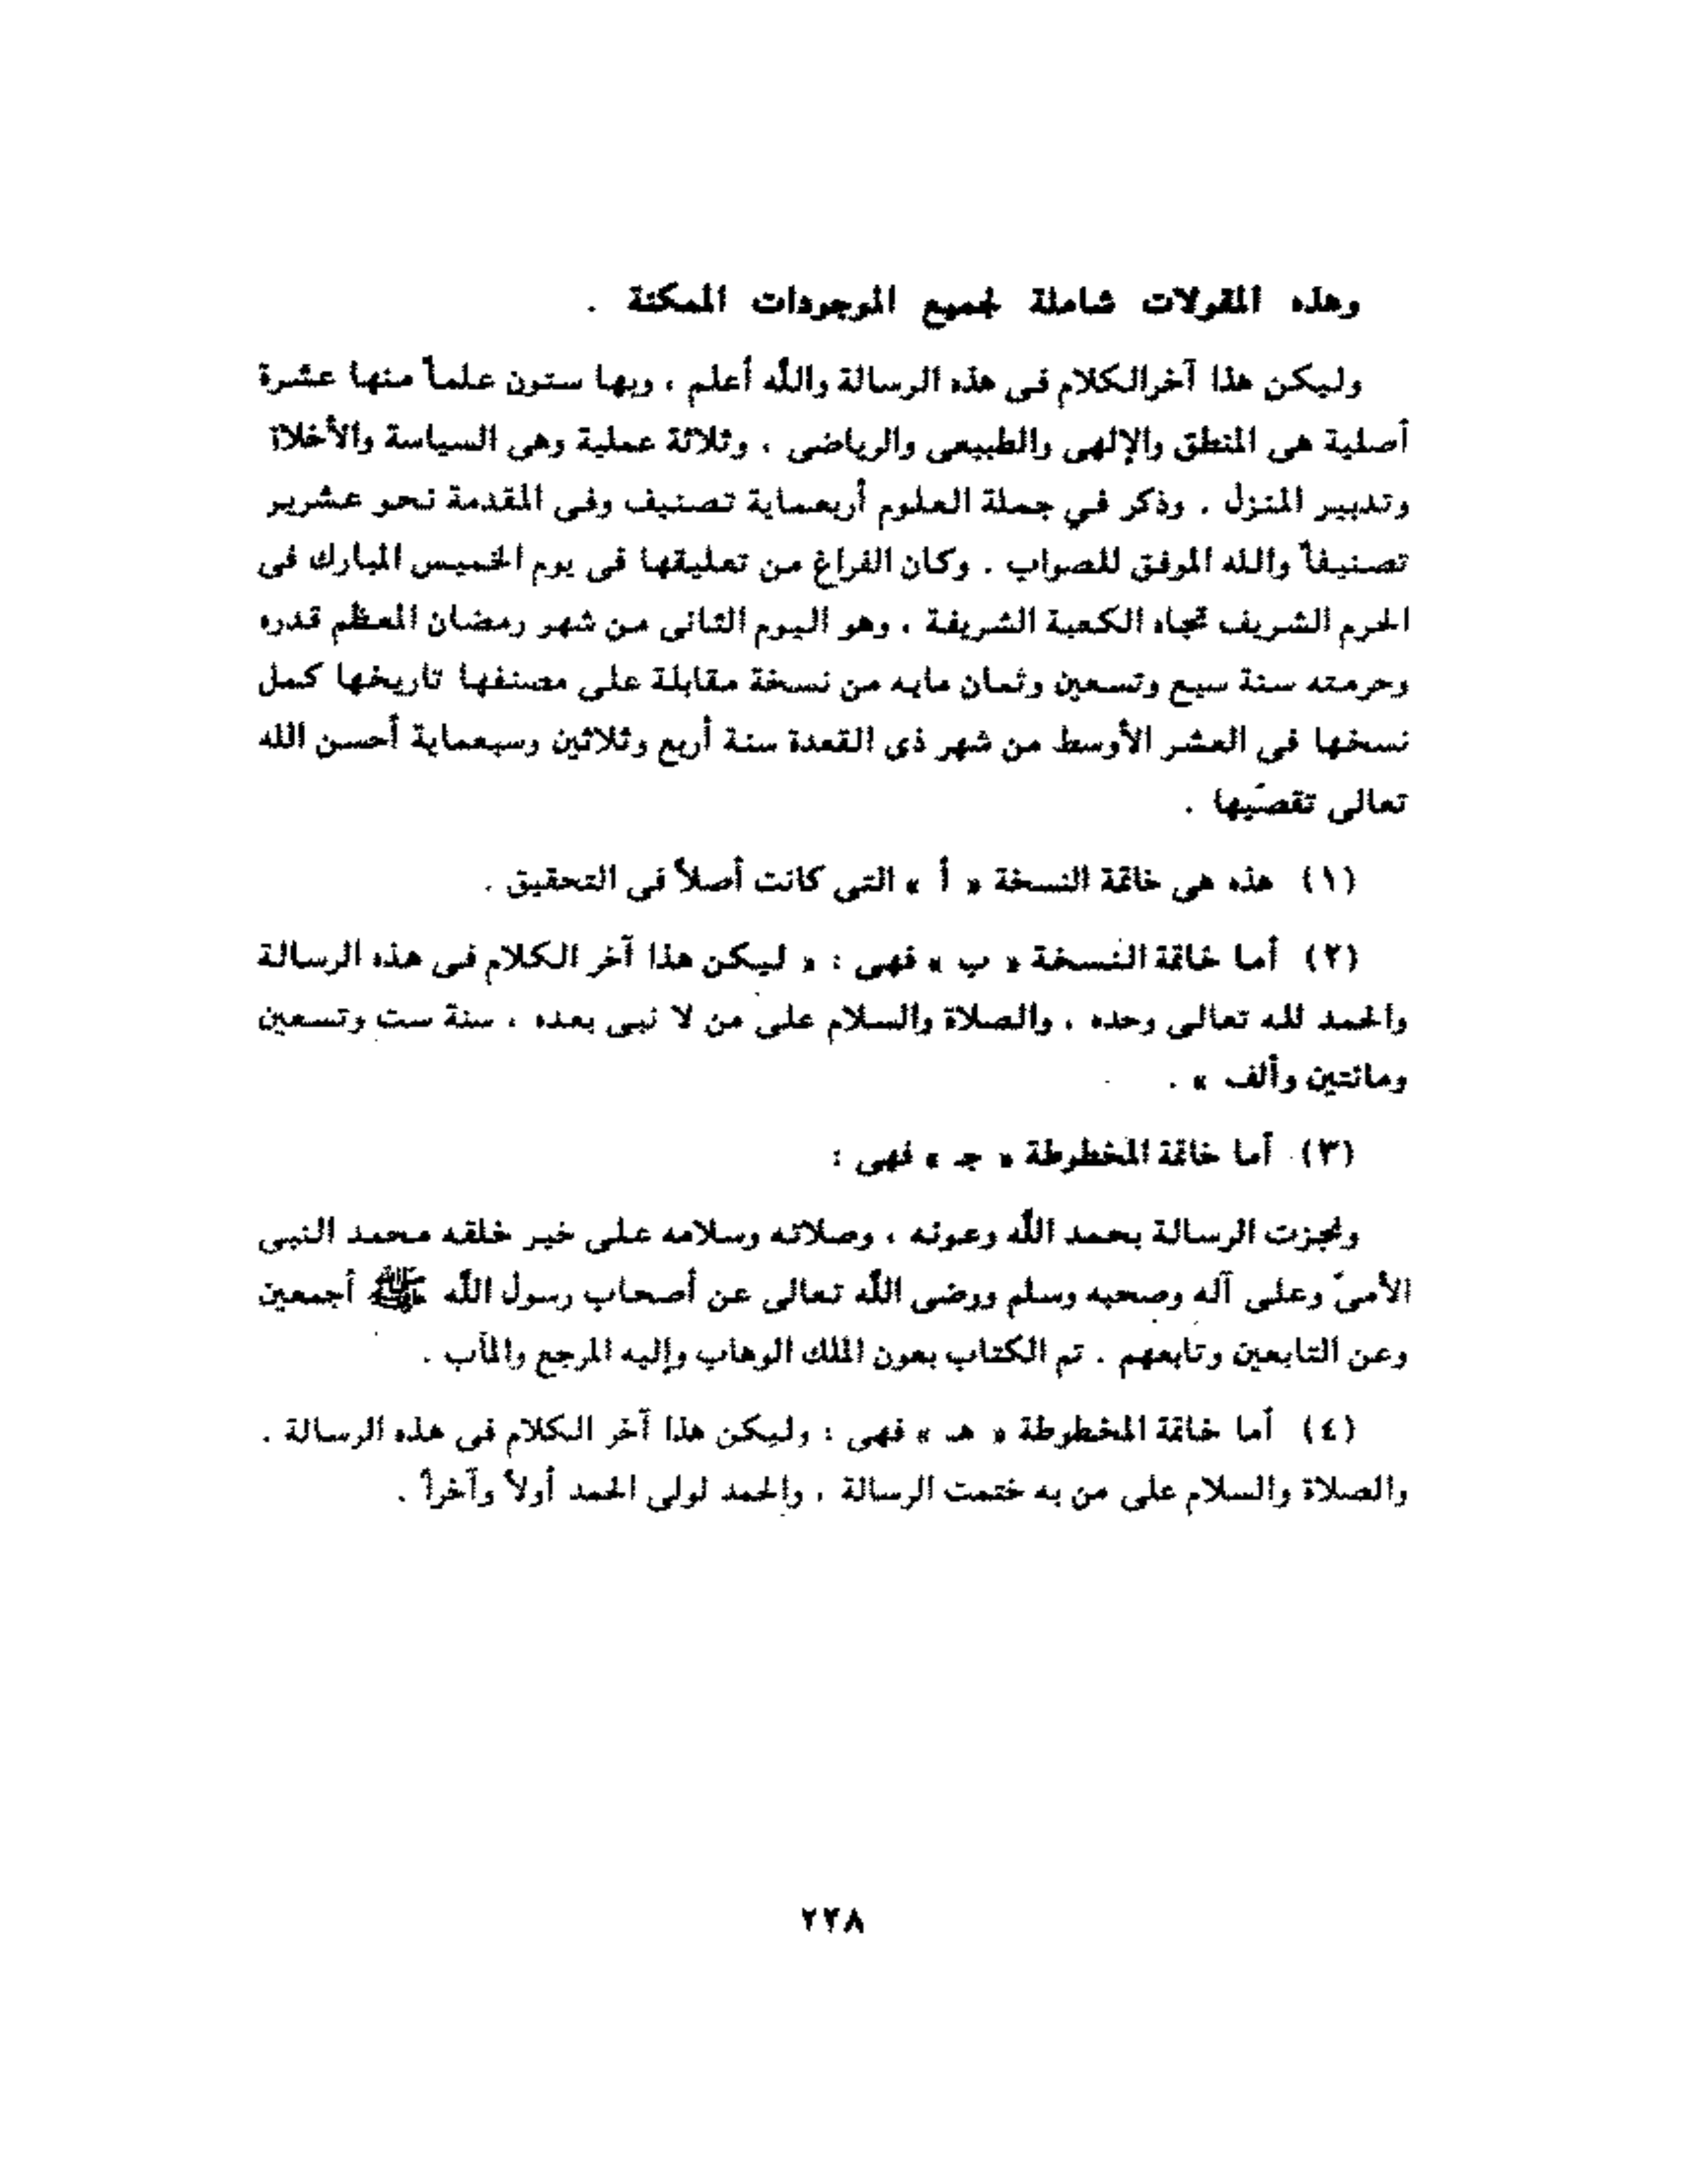 وهذه المقولات شاملة لجميع الموجودات الممكنة .
وليكن هذا آخرالكلام فى هذه الرسالة واللّه أعلم ، وبها ستون علماً منها عشرة
أصلية هى المنطق والإلهى والطبيعى والرياضى ، وثلاثة عملية وهى السياسة والأخلاق
وتدبير المنزل . وذكر في جملة العلوم أربعماية تصنيف وفى المقدمة نحو عشرير
تصنيفاً والله الموفق للصواب . وكان الفراغ من تعليقها فى يوم الخميس المبارك فى
الحرم الشريف تجاه الكعبة الشريفة ، وهو اليوم الثانى من شهر رمضان المعظم قدره
وحرمته سنة سبع وتسعين وثمان مايه من نسخة مقابلة على مصنفها تاريخها كمل
نسخها فى العشر الأوسط من شهر ذى القعدة سنة أربع وثلاثين وسبعماية أحسن الله
تعالى تقصّيها .
(١) هذه هى خاتمة النسخة « أ » التى كانت أصلاً فى التحقيق .
(٢) أما خاتمة النسخة « ب » فهى : « ليكن هذا آخر الكلام فى هذه الرسالة
والحمد لله تعالى وحده ، والصلاة والسلام على من لا نبى بعده ، سنة ست وتسعين
ومائتين وألف » .
(٣) أما خاتمة المخطوطة « جـ » فهى :
ونجزت الرسالة بحمد اللّه وعونه ، وصلاته وسلامه على خير خلقه محمد النبى
الأمىّ وعلى آله وصحبه وسلم ورضى اللّه تعالى عن أصحاب رسول اللّه ﷺ أجمعين
وعن التابعين وتابعهم . تم الكتاب بعون الملك الوهاب وإليه المرجع والمآب .
(٤) أما خاتمة المخطوطة « هـ » فهى : وليكن هذا آخر الكلام فى هذه الرسالة .
والصلاة والسلام على من به ختمت الرسالة ، والحمد لولى الحمد أولاً وآخراً .
٢٣٨